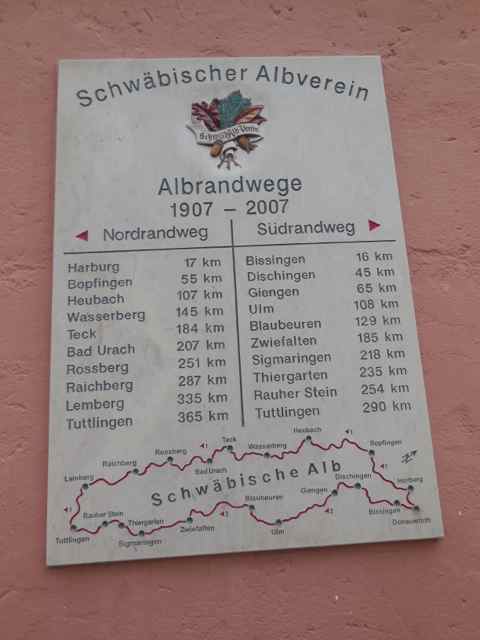 Schwäbischer Albverein
Schwäb. Alb-Verein
Albrandwege
1907 – 2007
Nordrandweg Südrandweg
Harburg 17 km Bissingen 16 km
Bopfingen 55 km Dischingen 45 km
Heubach 107 km Giengen 65 km
Wasserberg 145 km Ulm 108 km
Teck 184 km Blaubeuren 129 km
Bad Urach 207 km Zwiefalten 185 km
Rossberg 251 km Sigmaringen 218 km
Raichberg 287 km Thiergarten 235 km
Lemberg 335 km Rauher Stein 254 km
Tuttlingen 365 km Tuttlingen 290 km
Heubach
Teck Wasserberg Bopfingen
Rossberg
Raichberg Bad Urach
Lemberg Schwäbische Alb Dischingen Harburg
Giengen
Rauher Stein Blaubeuren
Thiergarten Zwiefalten Bissingen
Donauwörth
Tuttlingen Sigmaringen Ulm